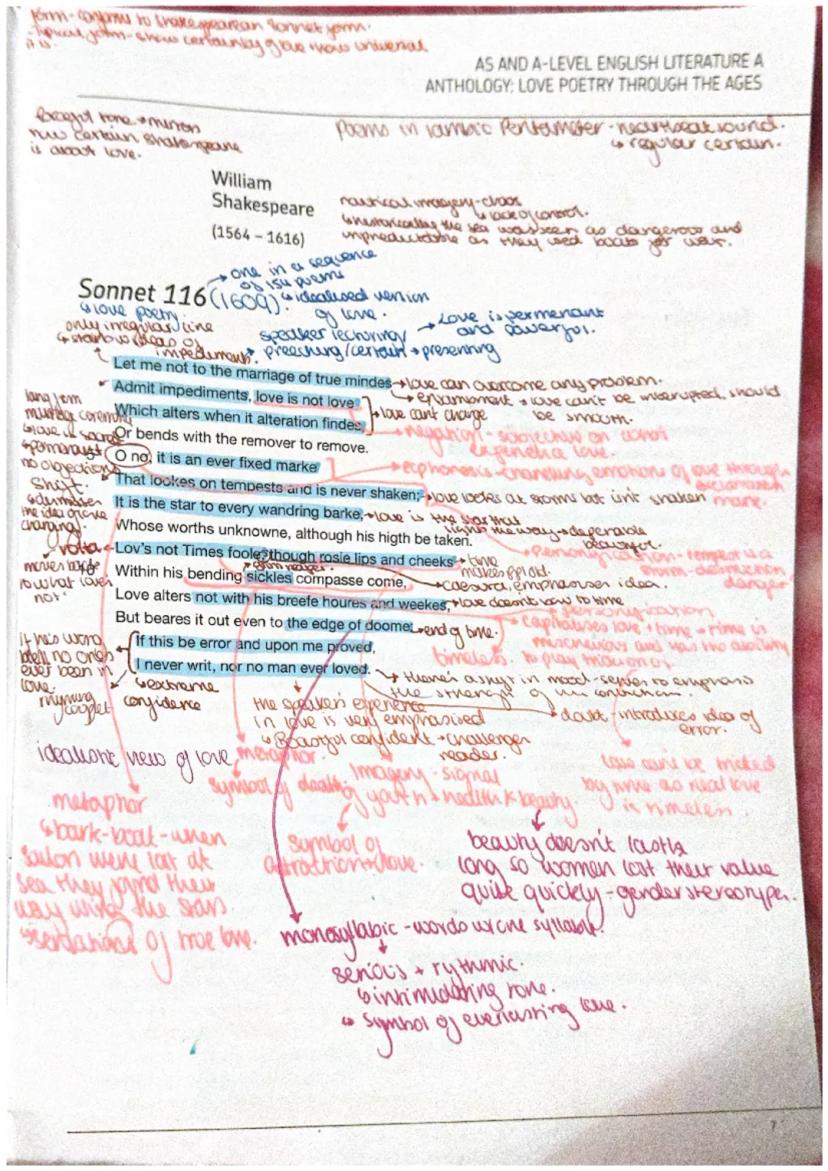 form - conforms to Shakespearean Sonnet form.
- typical form - show certainty of love + how universal
it is.
AS AND A-LEVEL ENGLISH LITERATURE A
ANTHOLOGY: LOVE POETRY THROUGH THE AGES
tone + mirrors
how certain Shakespeare
is about love.
Poems in iambic Pentameter - heartbeat sound.
↳ regular certain.
William
Shakespeare
(1564 – 1616)
nautical imagery - chaos
↳ lack of control.
↳ historically the sea was seen as dangerous and
unpredictable as they used boats for war.
Sonnet 116
(1609)
→ one in a sequence
of 154 poems
↳ idealised version
of love.
↳ love poetry.
only irregular line
↳ ideas of
impediments.
speaker lecturing/
preeching/certain → presenting
→ Love is permenant
and powerful.
Let me not to the marriage of true mindes
→ love can overcome any problem.
Admit impediments, love is not love
↳ enjambment → love can't be interrupted, should
be smooth.
Which alters when it alteration findes,
→ love can't change
Or bends with the remover to remove.
negation -
O no, it is an ever fixed marke
ecphonesis - emotions of love through
That lookes on tempests and is never shaken;
→ love looks at storms but isn't shaken
It is the star to every wandring barke,
→ love is the star that
lights the way → dependable
beautiful.
Whose worths unknowne, although his higth be taken.
Lov's not Times foole, though rosie lips and cheeks
→ time
makes ppl old.
Within his bending sickles compasse come,
grim reaper.
→ caesura, emphasises idea.
Love alters not with his breefe houres and weekes,
→ love doesn't bow to time
But beares it out even to the edge of doome:
→ end of time.
If this be error and upon me proved,
I never writ, nor no man ever loved.
long form
marriage ceremony
↳ love is sacred
↳ permanent
no objections
Shift.
the idea of love
changing.
volta
moves back
to what love is
not.
personification - tempest is a
storm - destruction
danger
personification
capitalises love + time → time is
mischevious and has the ability
to play tricks on us.
timeless.
If he's wrong
then no one's
ever been in
love.
rhyming
couplet
↳ extreme
confidence
→ there's a shift in mood - serves to emphasis
the strength of his conviction.
→ doubt - introduces idea of
error.
the speaker's experience
in love is very emphasised
↳ Boastful confident → challenges
reader.
idealistic view of love
metaphor.
symbol of death
Imagery - signal
of youth + health & beauty
symbol of
attraction + love.
love can't be tricked
by time as real love
is timeless.
metaphor
↳ bark - boat - when
sailors were lost at
sea they found their
way using the stars.
of true love.
beauty doesn't last
long so women lost their value
quite quickly - gender stereotype.
monosyllabic - words w one syllable.
serious + rythmic.
↳ intimidating tone.
↳ symbol of everlasting love.
7